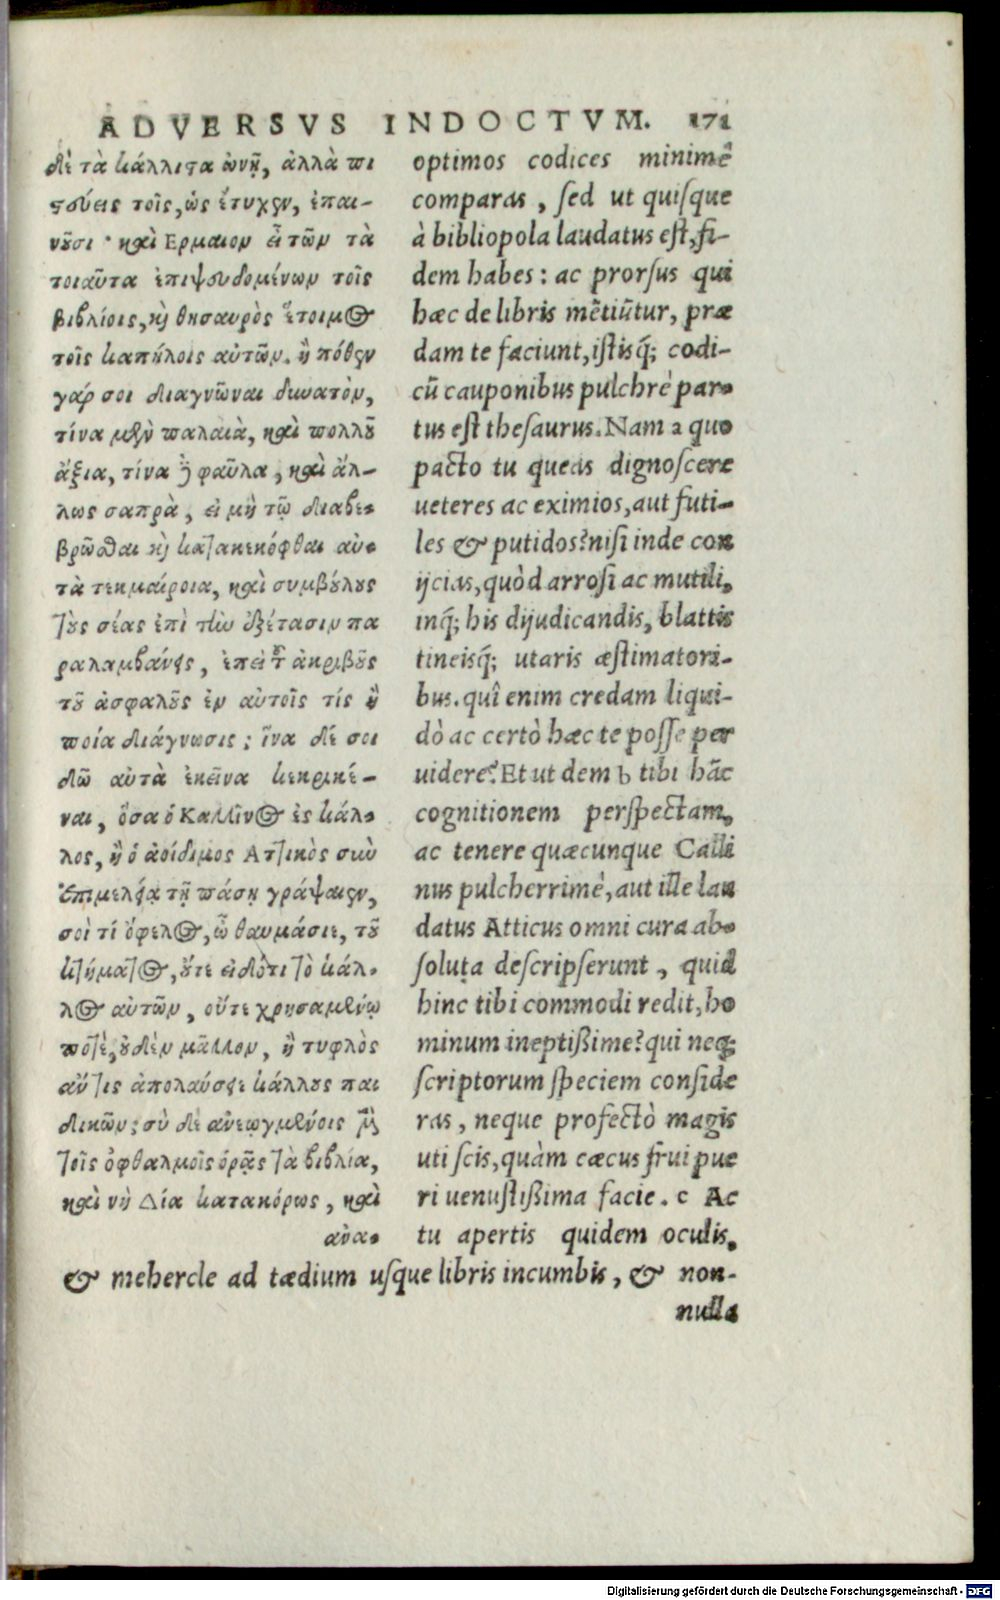 ADVERSVS INDOCTVM. 171
δὲ τὰ κάλλιστα ὠνῇ, ἀλλὰ πι
στεύεις τοῖς, ὡς ἔτυχεν, ἐπαι-
νοῦσι · καὶ Ερμαιον εἶ τῶν τὰ
τοιαῦτα ἐπιψευδομένων τοῖς
βιβλίοις, καὶ θησαυρὸς ἕτοιμος
τοῖς καπήλοις αὐτῶν. ἢ πόθεν
γάρ σοι διαγνῶναι δυνατὸν,
τίνα μὲν παλαιὰ, καὶ πολλοῦ
ἄξια, τίνα δὲ φαῦλα, καὶ ἄλ-
λως σαπρὰ, εἰ μὴ τῷ διαβε-
βρῶσθαι καὶ κατακεκόφθαι αὐ-
τὰ τεκμαίροια, καὶ συμβούλους
τοὺς σέας ἐπὶ τὴν ἐξέτασιν πα
ραλαμβάνεις, ἐπεὶ τοῦ ἀκριβοῦς
τοῦ ἀσφαλοῦς ἐν αὐτοῖς τίς ἢ
ποία διάγνωσις; ἵνα δέ σοι
δῶ αὐτὰ ἐκεῖνα κεκρικέ-
ναι, ὅσα ὁ Καλλῖνος ἐς κάλ-
λος, ἢ ὁ ἀοίδιμος Ἀττικὸς σὺν
ἐπιμελείᾳ τῇ πάσῃ γράψαιεν,
σοὶ τί ὄφελος, ὦ θαυμάσιε, τοῦ
κτήματος, οὔτε εἰδότι τὸ κάλ-
λος αὐτῶν, οὔτε χρησαμένῳ
ποτὲ, οὐδὲν μᾶλλον, ἢ τυφλὸς
αὔτις ἀπολαύσειε κάλλους παι
δικῶν; σὺ δὲ ἀνεῳγμένοις μὲν
τοῖς ὀφθαλμοῖς ὁρᾷς τὰ βιβλία,
καὶ νὴ Δία κατακόρως, καὶ
ἀνα-
optimos codices minimê
comparas, sed ut quisque
à bibliopola laudatus est, fi-
dem habes: ac prorsus qui
hæc de libris mẽtiũtur, præ
dam te faciunt, istisq́; codi-
cũ cauponibus pulchrè par-
tus est thesaurus. Nam a quo
pacto tu queas dignoscere
ueteres ac eximios, aut futi-
les & putidos? nisi inde con
ijcias, quòd arrosi ac mutili,
inq́; his dijudicandis, blattis
tineisq́; utaris æstimatori-
bus. quî enim credam liqui-
dò ac certò hæc te posse per
uidere? Et ut dem b tibi hãc
cognitionem perspectam,
ac tenere quæcunque Calli
nus pulcherrimè, aut ille lau
datus Atticus omni cura ab-
soluta descripserunt, quid
hinc tibi commodi redit, ho
minum ineptißime? qui neq;
scriptorum speciem conside
ras, neque profectò magis
uti scis, quàm cæcus frui pue
ri uenustißima facie. c Ac
tu apertis quidem oculis,
& mehercle ad tædium usque libris incumbis, & non-
nulla
Digitalisierung gefördert durch die Deutsche Forschungsgemeinschaft - DFG